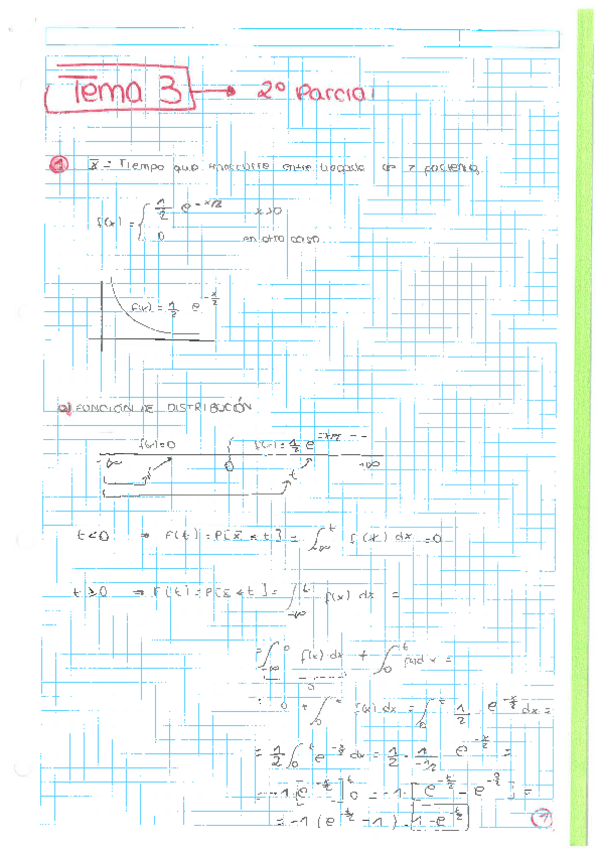 Tema 3 → 2º Parcial
① X = Tiempo que transcurre entre llegada de 2 pacientes
f(x) = { 1/2 e^{-x/2} x>0
0 en otro caso
f(x) = 1/2 e^{-x/2}
a) FUNCIÓN DE DISTRIBUCIÓN
f(x)=0 f(x)=1/2 e^{-x/2}
-∞ t 0 t +∞
t<0 ⇒ F(t) = P[X ≤ t] = ∫_{-∞}^{t} f(x) dx = 0
t ≥ 0 ⇒ F(t) = P[X ≤ t] = ∫_{-∞}^{t} f(x) dx =
= ∫_{-∞}^{0} f(x) dx + ∫_{0}^{t} f(x) dx =
0
= 0 + ∫_{0}^{t} f(x) dx = ∫_{0}^{t} 1/2 e^{-x/2} dx =
= 1/2 ∫_{0}^{t} e^{-x/2} dx = 1/2 · 1/(-1/2) e^{-x/2} =
= -1 [e^{-x/2}]_{0}^{t} = -1 · [e^{-t/2} - e^{-0/2}] =
= -1 (e^{-t/2} - 1) = 1 - e^{-t/2}
1